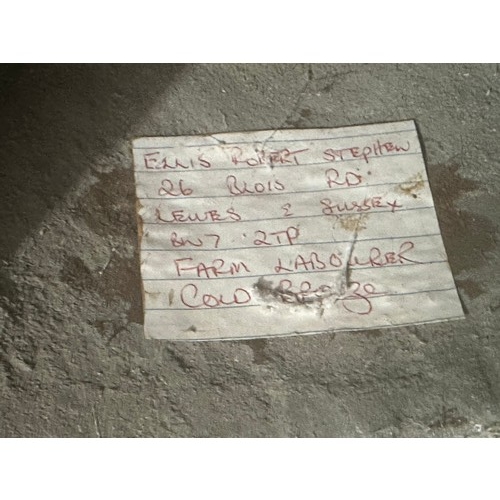 ELLIS ROBERT STEPHEN
26 BLOIS RD.
LEWES E SUSSEX
BN7 2TP
FARM LABOURER
COLD